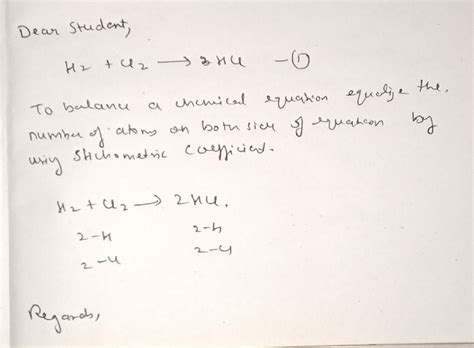 Dear Student,
H2 + Cl2 → 2HCl —①
To balance a chemical equation equalize the
number of atoms on both side of equation by
using Stichometric Coefficient.
H2 + Cl2 → 2HCl.
2-H 2-H
2-Cl 2-Cl
Regards,